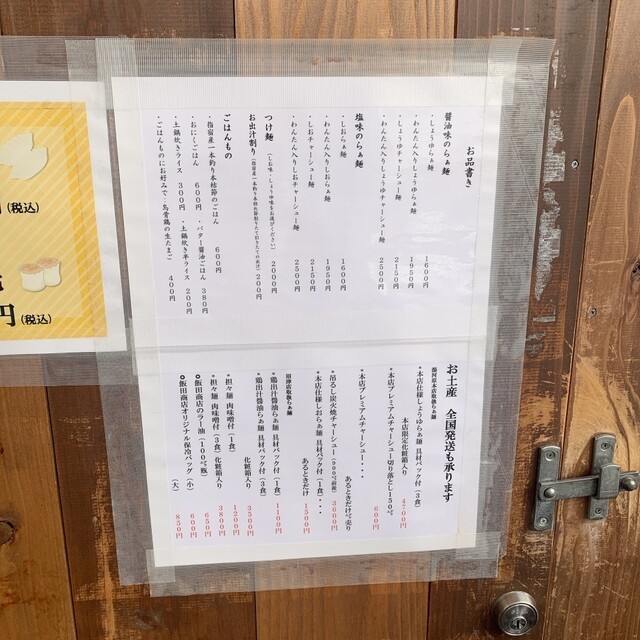 お品書き
醤油味のらぁ麺
・しょうゆらぁ麺 1600円
・わんたん入りしょうゆらぁ麺 1950円
・しょうゆチャーシュー麺 2150円
・わんたん入りしょうゆチャーシュー麺 2500円
塩味のらぁ麺
・しおらぁ麺 1600円
・わんたん入りしおらぁ麺 1950円
・しおチャーシュー麺 2150円
・わんたん入りしおチャーシュー麺 2500円
つけ麺 (しお味・しょうゆ味をお選びください) 2000円
お出汁割り 200円
ごはんもの
・指宿産一本釣り本枯節のごはん 600円
・おにしごはん 600円 ・バター醤油ごはん 380円
・土鍋炊きライス 300円 ・土鍋炊き半ライス 200円
・ごはんものにお好みで:烏骨鶏の生たまご 400円
お土産 全国発送も承ります
湯河原本店取扱らぁ麺
・本店仕様しょうゆらぁ麺 具材パック付(3食)
本店限定化粧箱入り 4700円
・本店プレミアムチャーシュー切り落とし150g
・本店プレミアムチャーシュー・・・ 600円
あるときだけ*売り
・吊るし炭火焼チャーシュー 3600円
・本店仕様しおらぁ麺 具材パック付(1食)・・・
あるときだけ 1500円
沼津店取扱らぁ麺
・鶏出汁醤油らぁ麺 具材パック付(1食) 1150円
・鶏出汁醤油らぁ麺 具材パック付(3食)
化粧箱入り 3500円
・担々麺 肉味噌付(1食) 1200円
・担々麺 肉味噌付(3食) 化粧箱入り 3800円
飯田商店のラー油(100g瓶) 650円
飯田商店オリジナル保冷バック(小) 600円
(大) 850円
(税込)
円(税込)